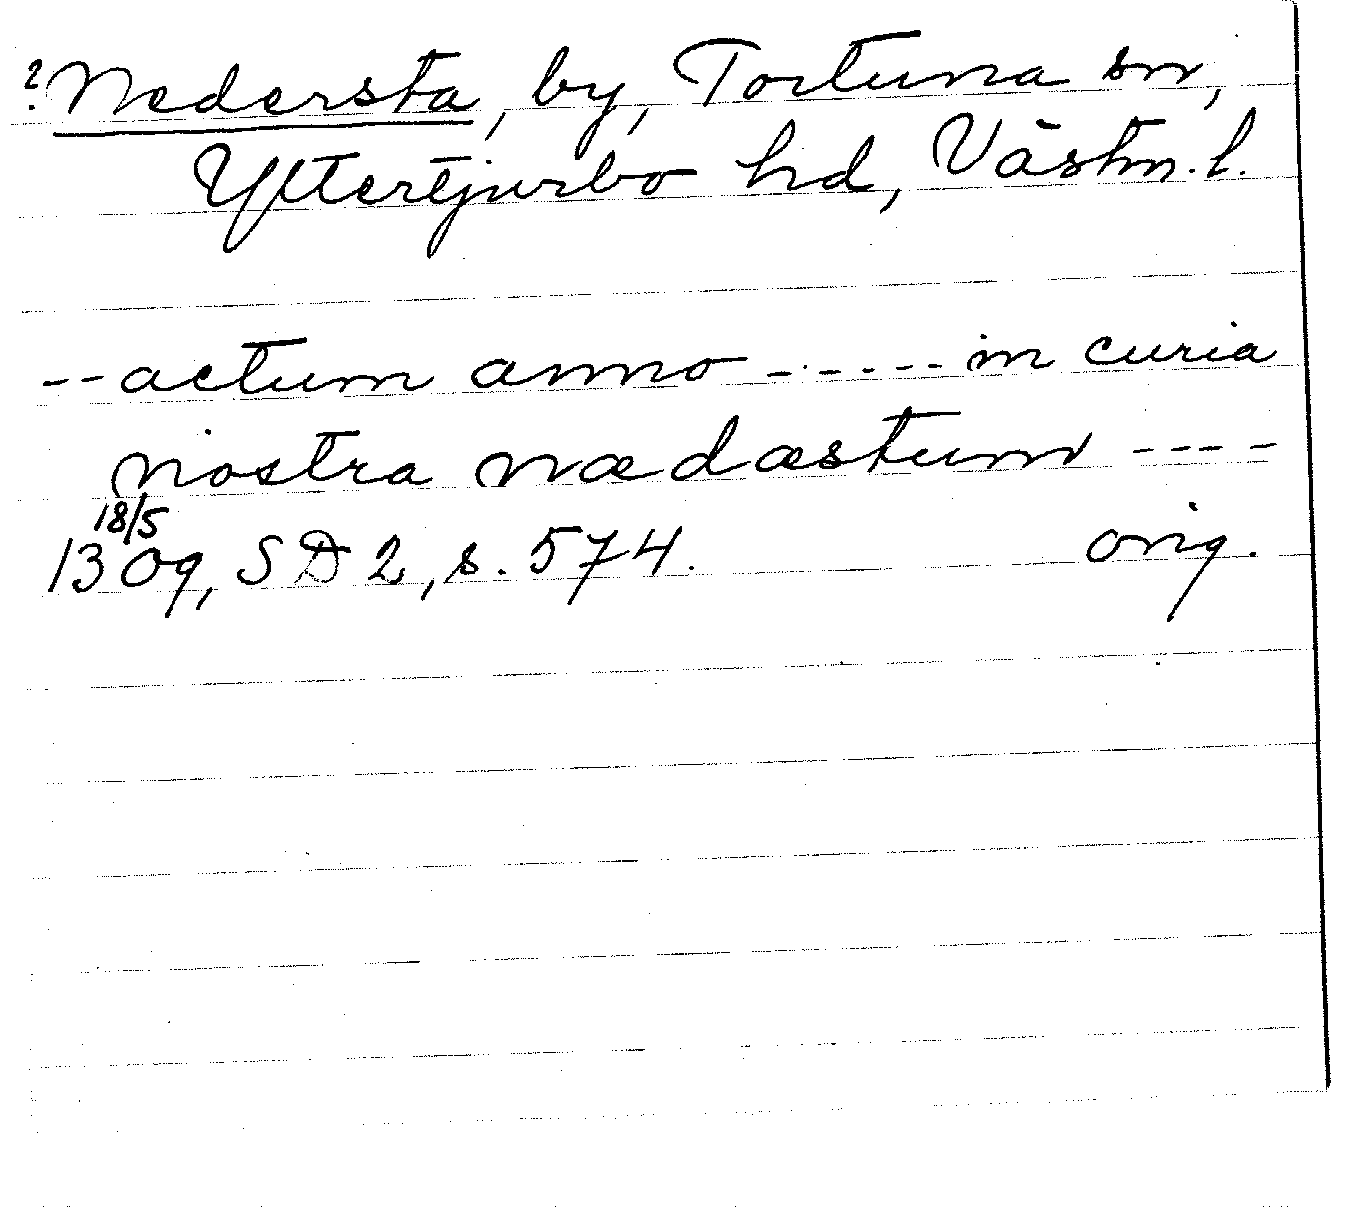 ? Nedersta, by, Tortuna sn,
Yttertjurbo hd, Västm. l.
-- actum anno ------ in curia
nostra nædæstum ----
18/5
1309, SD 2, s. 574. orig.